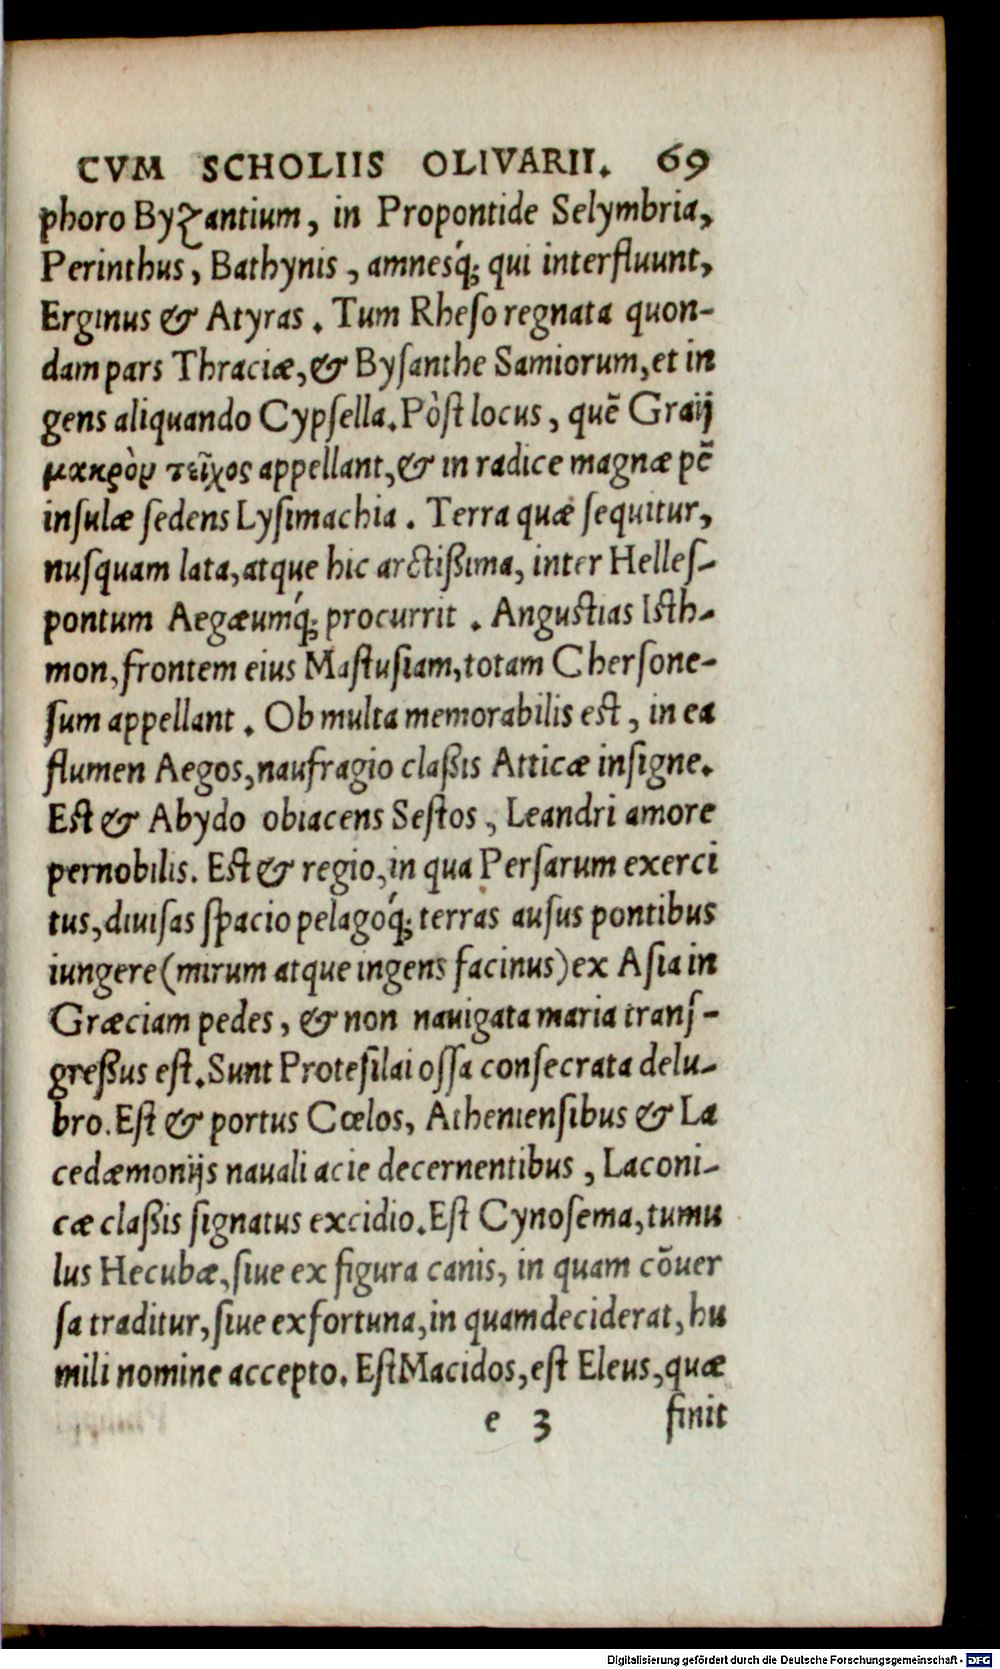 CVM SCHOLIIS OLIVARII. 69
phoro Byzantium, in Propontide Selymbria,
Perinthus, Bathynis, amnesq́; qui interfluunt,
Erginus & Atyras. Tum Rheſo regnata quon-
dam pars Thraciæ, & Byſanthe Samiorum, et in
gens aliquando Cypſella. Pòſt locus, quẽ Graij
μακρὸν τεῖχος appellant, & in radice magnæ pẽ
inſulæ ſedens Lyſimachia. Terra quæ ſequitur,
nuſquam lata, atque hic arctißima, inter Helleſ-
pontum Aegæumq́; procurrit. Anguſtias Iſth-
mon, frontem eius Maſtuſiam, totam Cherſone-
ſum appellant. Ob multa memorabilis eſt, in ea
flumen Aegos, naufragio claßis Atticæ inſigne.
Eſt & Abydo obiacens Seſtos, Leandri amore
pernobilis. Eſt & regio, in qua Perſarum exerci
tus, diuiſas ſpacio pelagoq́; terras auſus pontibus
iungere (mirum atque ingens facinus) ex Aſia in
Græciam pedes, & non nauigata maria tranſ-
greßus eſt. Sunt Proteſilai oſſa conſecrata delu-
bro. Eſt & portus Cœlos, Athenienſibus & La
cedæmonijs nauali acie decernentibus, Laconi-
cæ claßis ſignatus excidio. Eſt Cynoſema, tumu
lus Hecubæ, ſiue ex figura canis, in quam cõuer
ſa traditur, ſiue ex fortuna, in quam deciderat, hu
mili nomine accepto. Eſt Macidos, eſt Eleus, quæ
e 3 finit
Digitalisierung gefördert durch die Deutsche Forschungsgemeinschaft - DFG